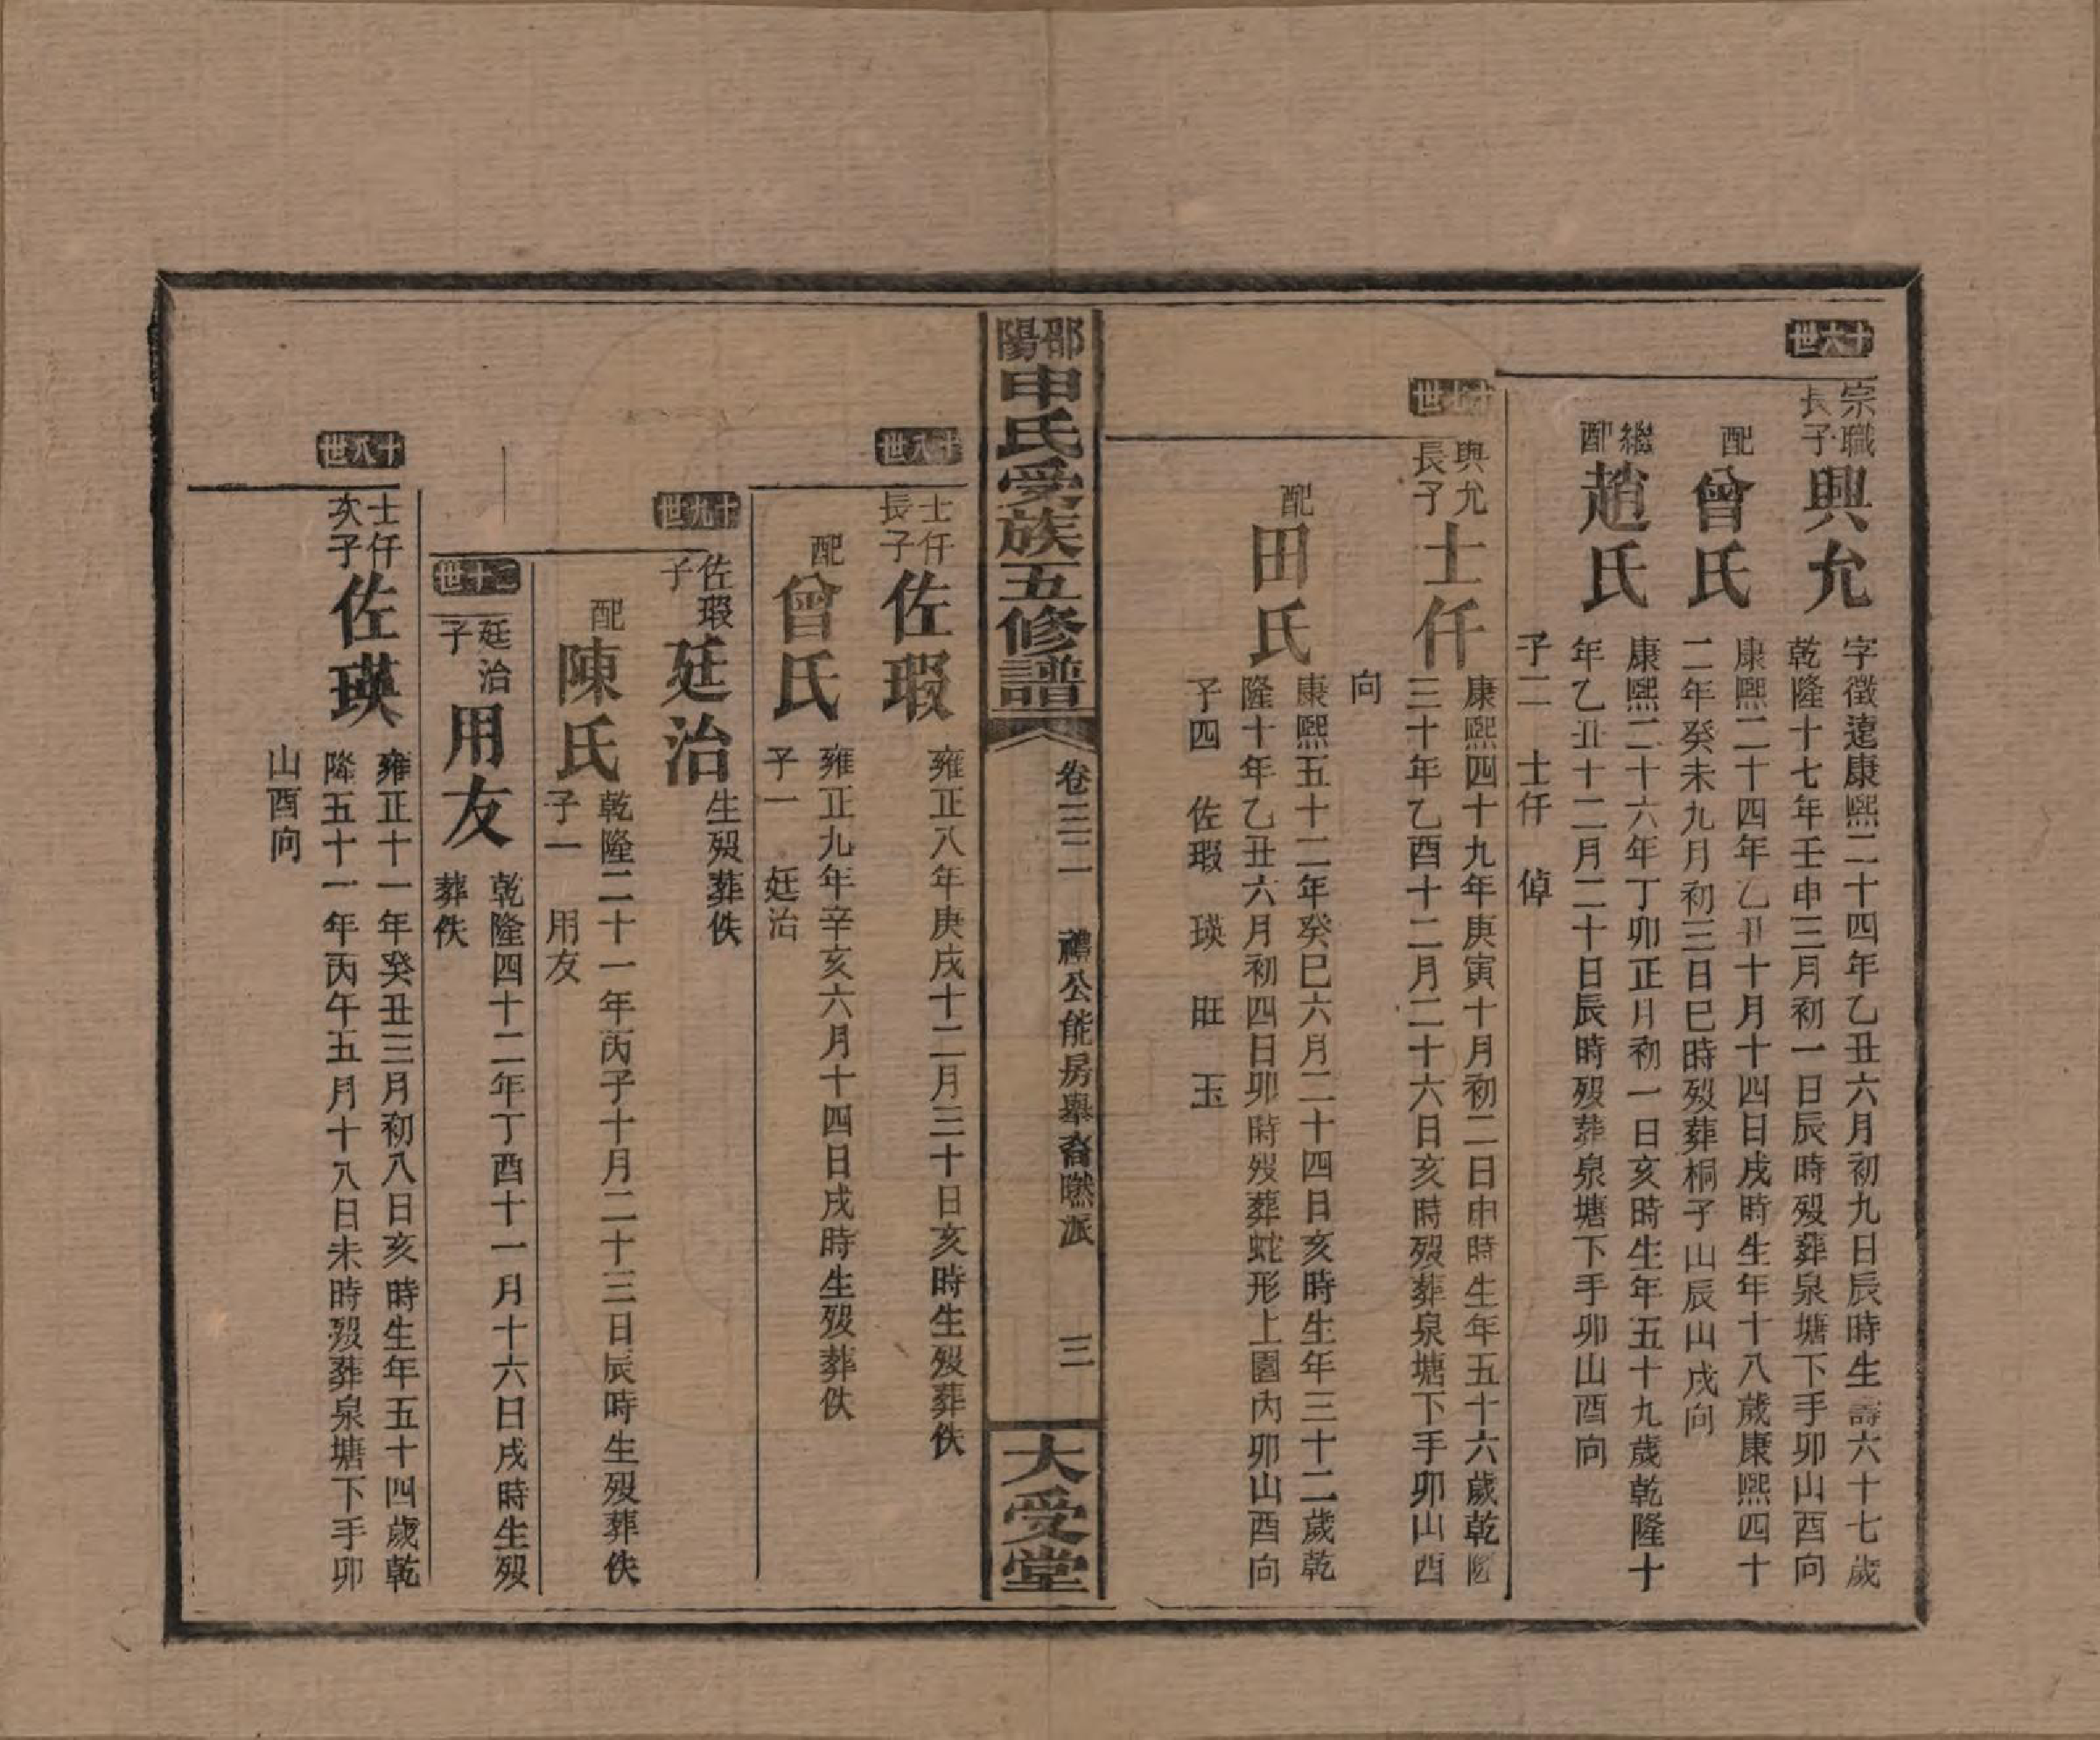 十六世
宗職
長子
興允
字徵遠康熙二十四年乙丑六月初九日辰時生壽六十七歲
乾隆十七年壬申三月初一日辰時歿葬泉塘下手卯山酉向
配
曾氏
康熙二十四年乙丑十月十四日戌時生年十八歲康熙四十
二年癸未九月初三日巳時歿葬桐子山辰山戌向
繼
配
趙氏
康熙二十六年丁卯正月初一日亥時生年五十九歲乾隆十
年乙丑十二月二十日辰時歿葬泉塘下手卯山酉向
子二 士仟 倬
十七世
與允
長子
士仟
康熙四十九年庚寅十月初二日申時生年五十六歲乾隆
三十年乙酉十二月二十六日亥時歿葬泉塘下手卯山酉
向
配
田氏
康熙五十二年癸巳六月二十四日亥時生年三十二歲乾
隆十年乙丑六月初四日卯時歿葬蛇形上園內卯山酉向
子四 佐瑕 瑛 旺 玉
邵陽申氏受族五修譜
卷三二 禮公能房舉裔㬗派 三
大受堂
十八世
士仟
長子
佐瑕
雍正八年庚戌十二月三十日亥時生歿葬佚
配
曾氏
雍正九年辛亥六月十四日戌時生歿葬佚
子一 廷治
十九世
佐瑕
子
廷治
生歿葬佚
配
陳氏
乾隆二十一年丙子十月二十三日辰時生歿葬佚
子一 用友
二十世
廷治
子
用友
乾隆四十二年丁酉十一月十六日戌時生歿
葬佚
十八世
士仟
次子
佐瑛
雍正十一年癸丑三月初八日亥時生年五十四歲乾
隆五十一年丙午五月十八日未時歿葬泉塘下手卯
山酉向